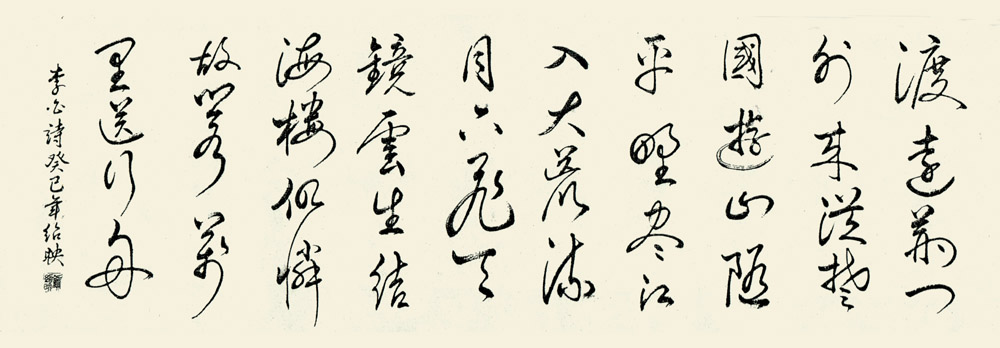 渡遠荊門
外來從楚
國遊山隨
平野尽江
入大荒流
月下飛天
鏡雲生結
海樓仍憐
故鄉水萬
里送行舟
李白詩癸巳年紹映